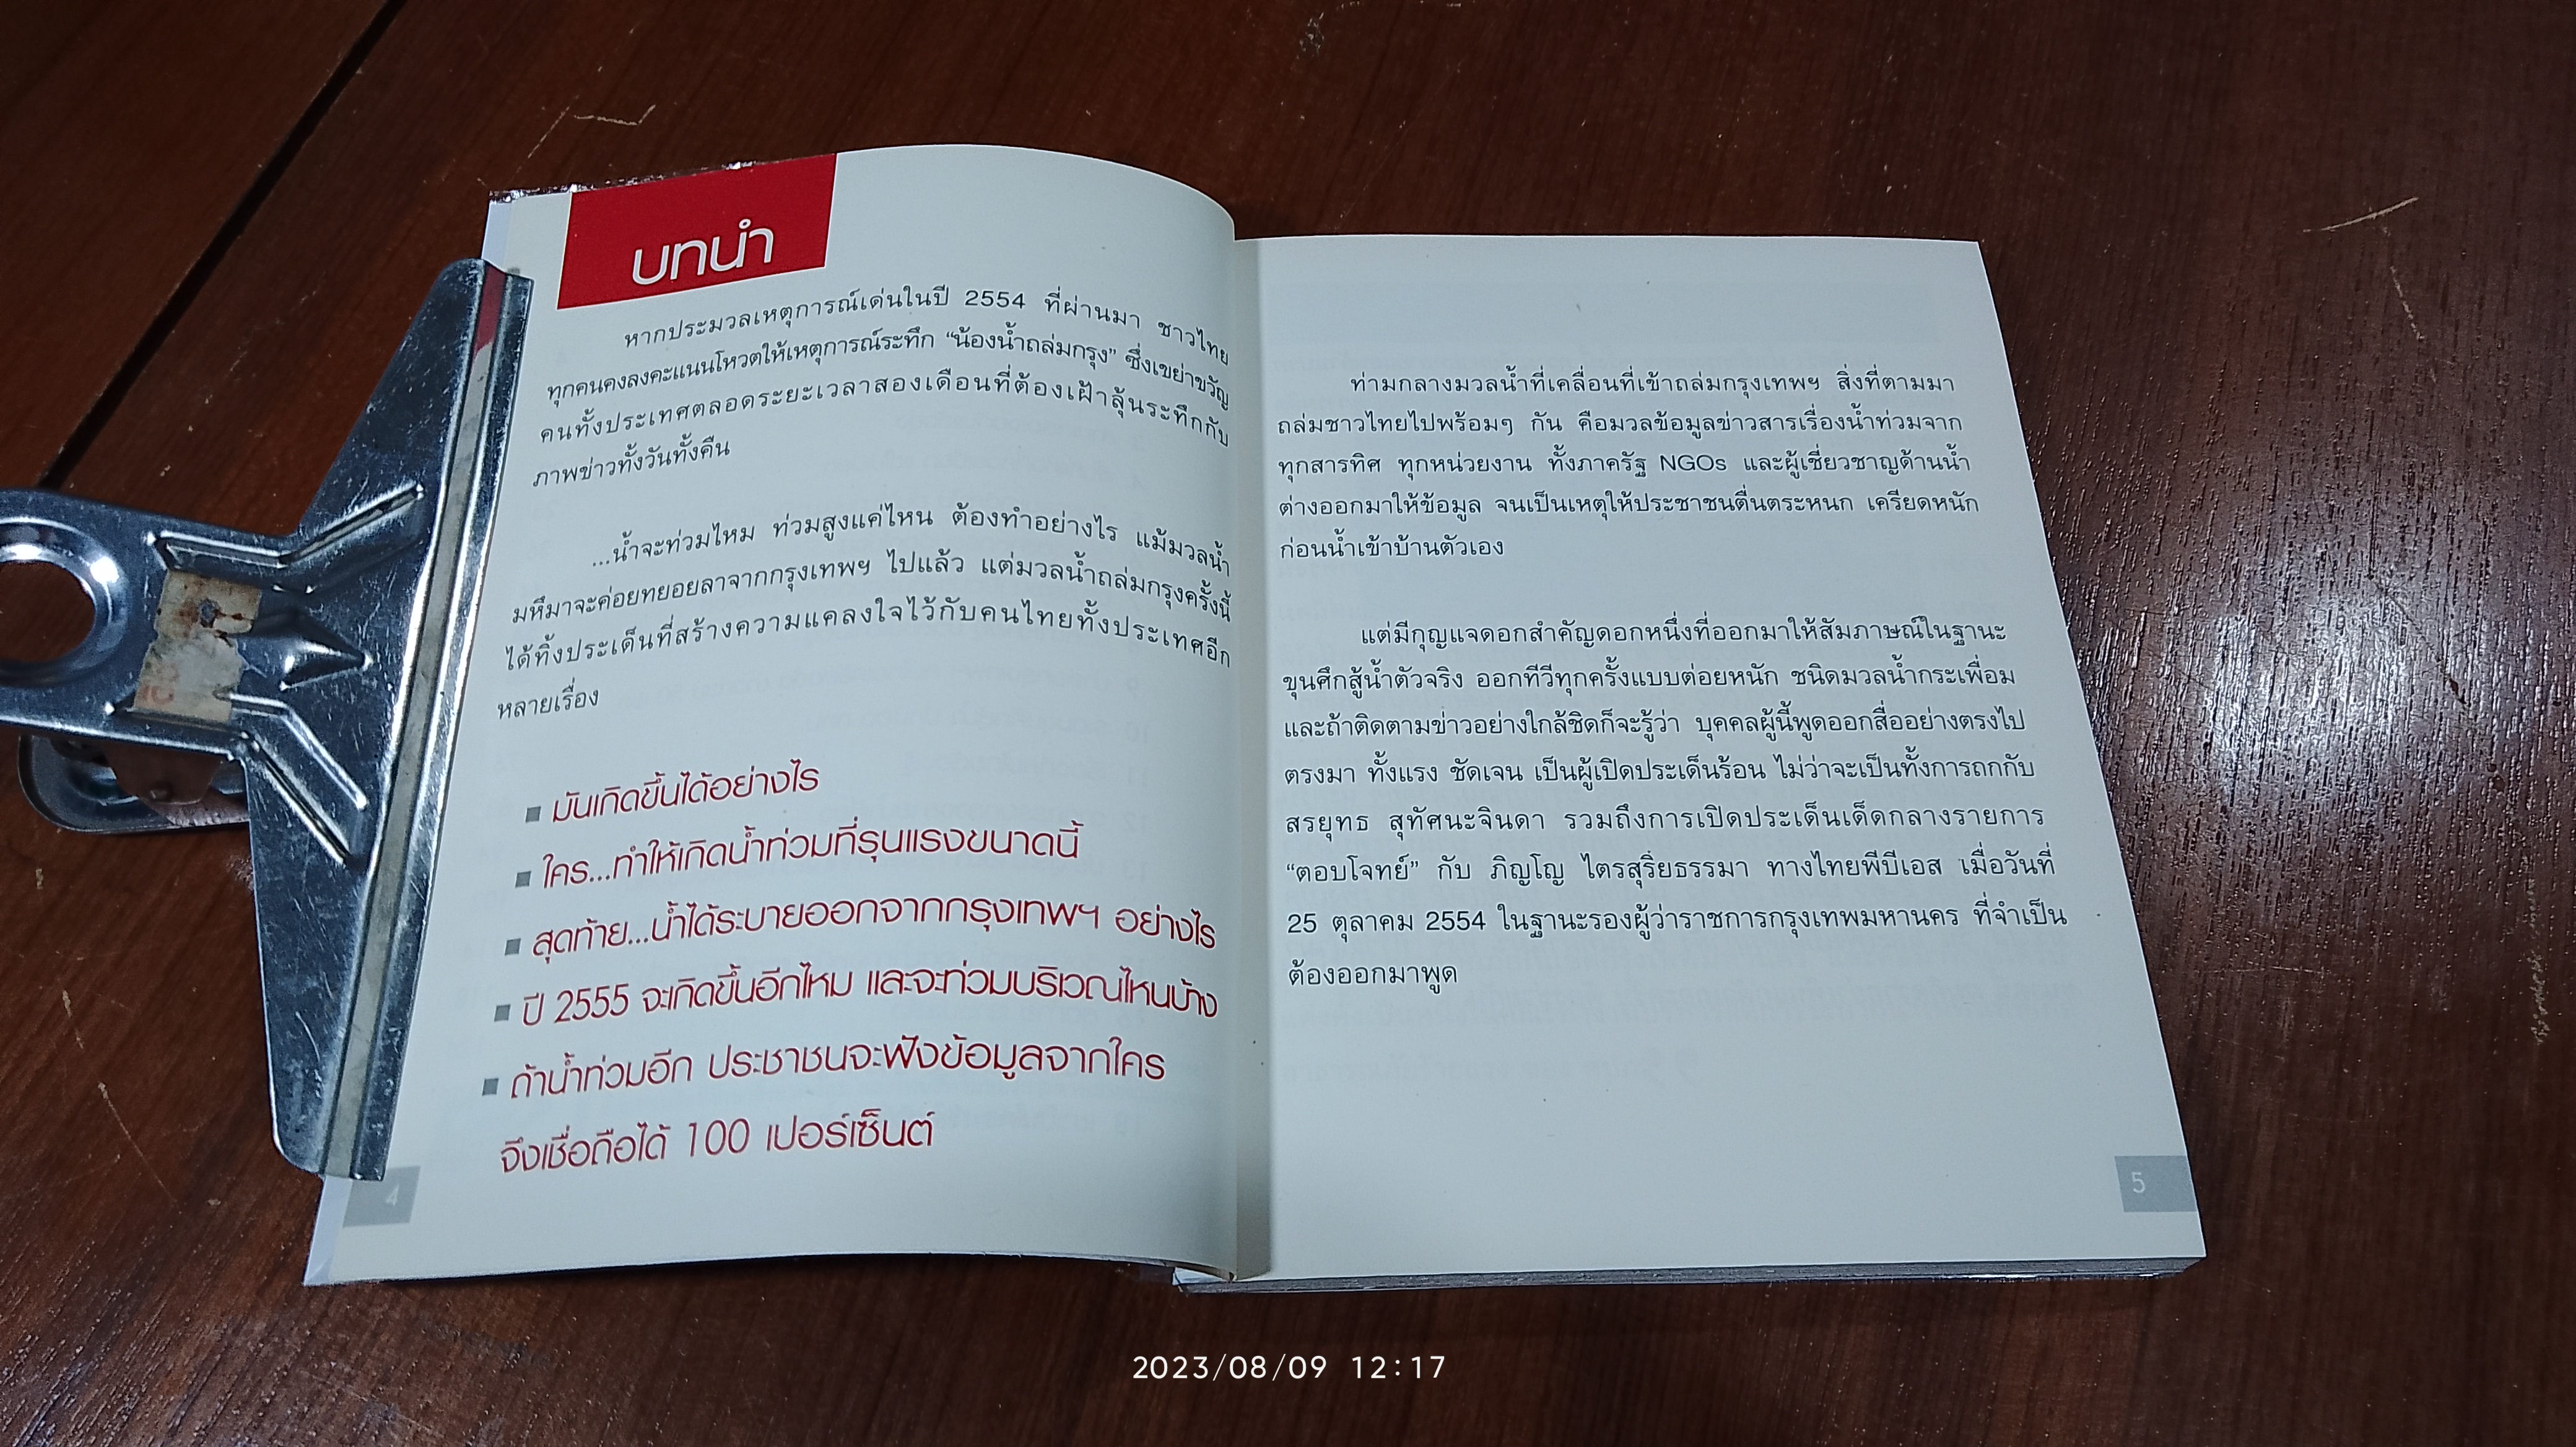 บทนำ
หากประมวลเหตุการณ์เด่นในปี 2554 ที่ผ่านมา ชาวไทย
ทุกคนคงลงคะแนนโหวตให้เหตุการณ์ระทึก “น้องน้ำถล่มกรุง” ซึ่งเขย่าขวัญ
คนทั้งประเทศตลอดระยะเวลาสองเดือนที่ต้องเฝ้าลุ้นระทึกกับ
ภาพข่าวทั้งวันทั้งคืน
...น้ำจะท่วมไหม ท่วมสูงแค่ไหน ต้องทำอย่างไร แม้มวลน้ำ
มหึมาจะค่อยทยอยลาจากกรุงเทพฯ ไปแล้ว แต่มวลน้ำถล่มกรุงครั้งนี้
ได้ทิ้งประเด็นที่สร้างความแคลงใจไว้กับคนไทยทั้งประเทศอีก
หลายเรื่อง
▪ มันเกิดขึ้นได้อย่างไร
▪ ใคร...ทำให้เกิดน้ำท่วมที่รุนแรงขนาดนี้
▪ สุดท้าย...น้ำได้ระบายออกจากกรุงเทพฯ อย่างไร
▪ ปี 2555 จะเกิดขึ้นอีกไหม และจะท่วมบริเวณไหนบ้าง
▪ ถ้าน้ำท่วมอีก ประชาชนจะฟังข้อมูลจากใคร
จึงเชื่อถือได้ 100 เปอร์เซ็นต์
4
ท่ามกลางมวลน้ำที่เคลื่อนที่เข้าถล่มกรุงเทพฯ สิ่งที่ตามมา
ถล่มชาวไทยไปพร้อมๆ กัน คือมวลข้อมูลข่าวสารเรื่องน้ำท่วมจาก
ทุกสารทิศ ทุกหน่วยงาน ทั้งภาครัฐ NGOs และผู้เชี่ยวชาญด้านน้ำ
ต่างออกมาให้ข้อมูล จนเป็นเหตุให้ประชาชนตื่นตระหนก เครียดหนัก
ก่อนน้ำเข้าบ้านตัวเอง
แต่มีกุญแจดอกสำคัญดอกหนึ่งที่ออกมาให้สัมภาษณ์ในฐานะ
ขุนศึกสู้น้ำตัวจริง ออกทีวีทุกครั้งแบบต่อยหนัก ชนิดมวลน้ำกระเพื่อม
และถ้าติดตามข่าวอย่างใกล้ชิดก็จะรู้ว่า บุคคลผู้นี้พูดออกสื่ออย่างตรงไป
ตรงมา ทั้งแรง ชัดเจน เป็นผู้เปิดประเด็นร้อน ไม่ว่าจะเป็นทั้งการถกกับ
สรยุทธ สุทัศนะจินดา รวมถึงการเปิดประเด็นเด็ดกลางรายการ
“ตอบโจทย์” กับ ภิญโญ ไตรสุริยธรรมา ทางไทยพีบีเอส เมื่อวันที่
25 ตุลาคม 2554 ในฐานะรองผู้ว่าราชการกรุงเทพมหานคร ที่จำเป็น
ต้องออกมาพูด
5
2023/08/09 12:17